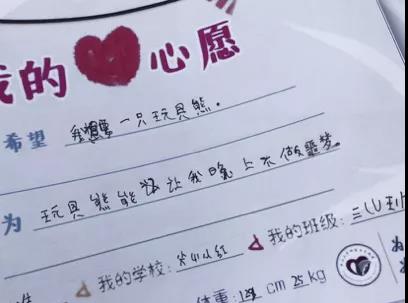 我的心愿
希望 我想要一只玩具熊。
为 玩具熊能让我晚上不做噩梦。
我的学校: 我的班级: 三
体重: cm 25 kg
为